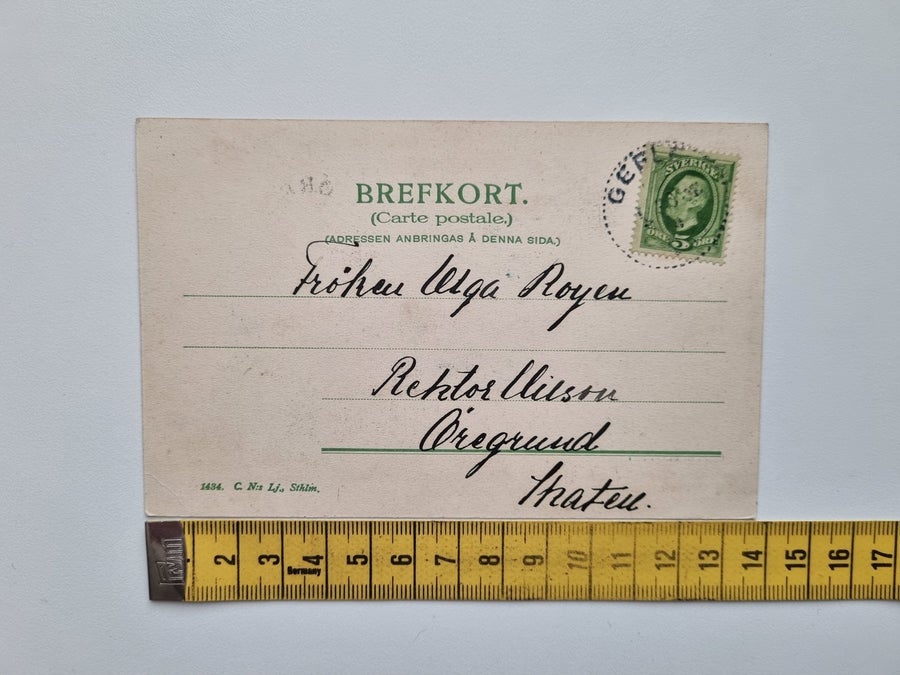 BREFKORT.
(Carte postale.)
(ADRESSEN ANBRINGAS Å DENNA SIDA.)
SVERIGE
5
ÖRE ÖRE
Fröken Olga Royen
Rektor Nilson
Öregrund
1434. C. N:s Lj., Sthlm.
2 3 4 5 6 7 8 9 10 11 12 13 14 15 16 17
Germany